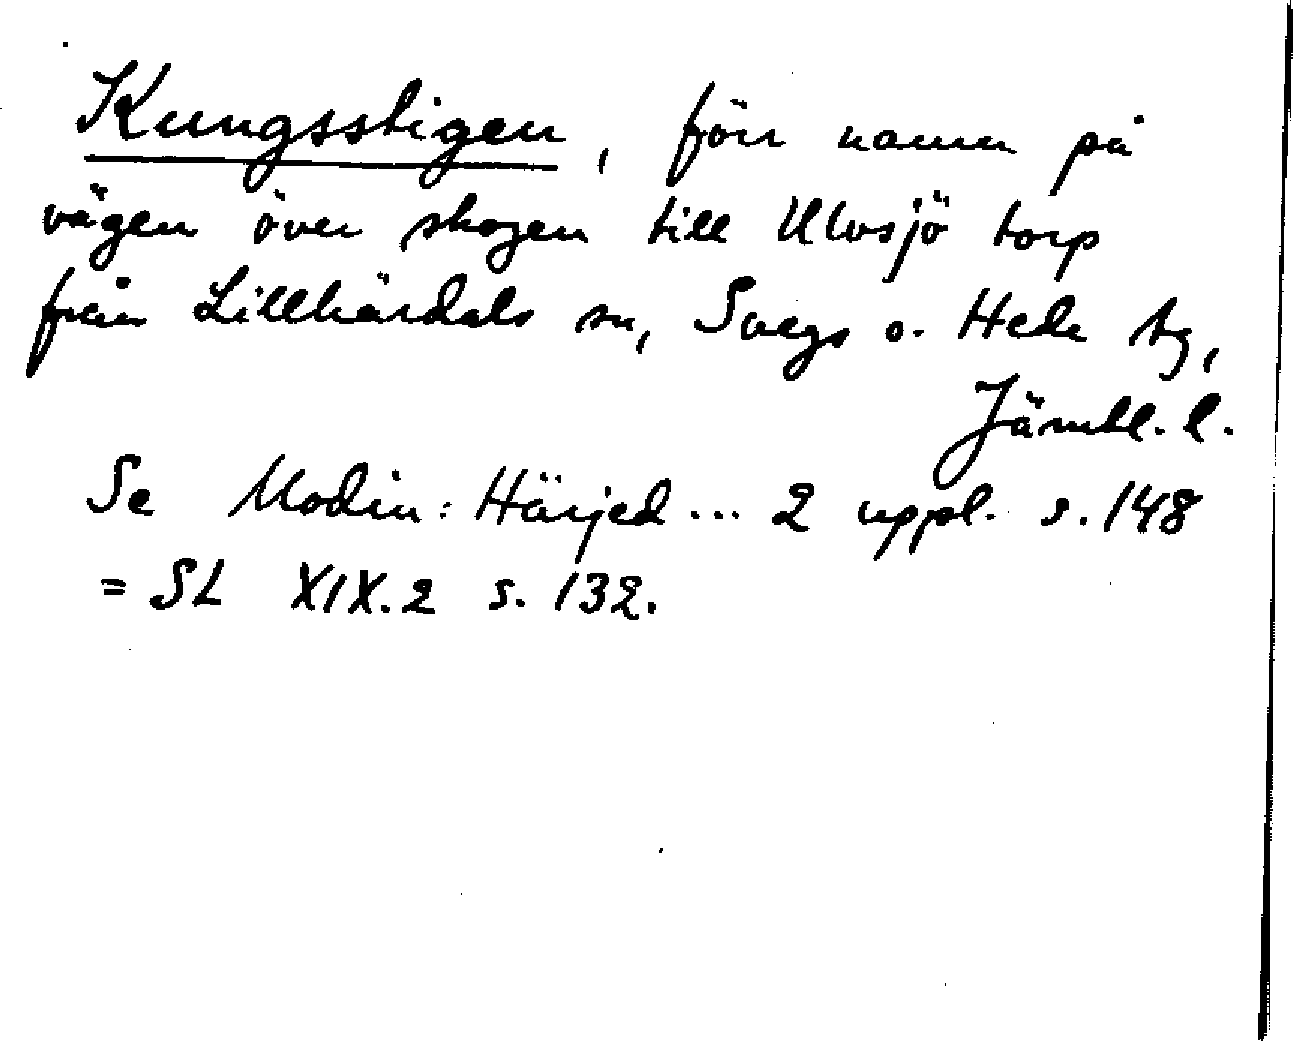 Kungsstigen, förr namn på
vägen över skogen till Ulvsjö torp
från Lillhärdals sn, Svegs o. Hede tg,
Jämtl. l.
Se Modin: Härjed... 2 uppl. s. 148
= SL XIX.2 s. 132.